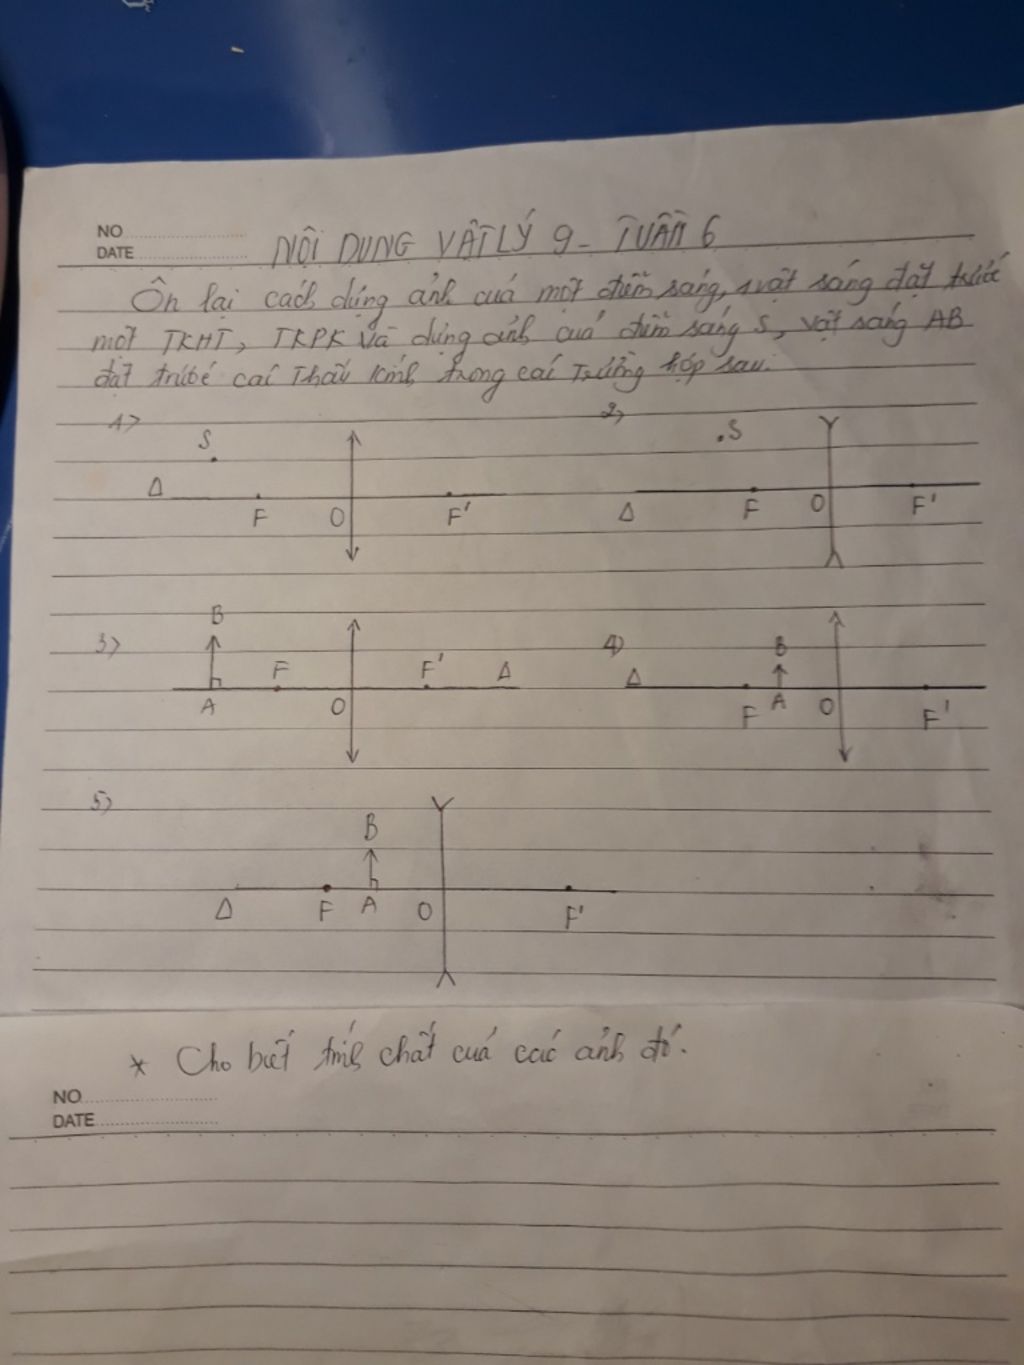 NO
DATE
NỘI DUNG VẬT LÝ 9 - TUẦN 6
Ôn lại cách dựng ảnh của một điểm sáng, vật sáng đặt trước
một TKHT, TKPK và dựng ảnh của điểm sáng S, vật sáng AB
đặt trước các Thấu kính trong các Trường hợp sau:
1) 2)
S .S
Δ F O F' Δ F O F'
3) B F F' Δ 4) Δ B
A O F A O F'
5)
B
Δ F A O F'
* Cho biết tính chất của các ảnh đó.
NO
DATE